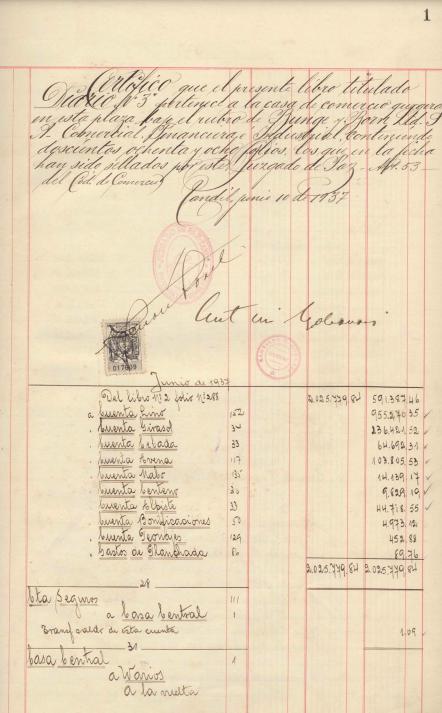 1
Certifico que el presente libro titulado
Diario Nº 3º pertenece a la casa de comercio que gira
en esta plaza bajo el rubro de Bunge y Born Ltd. S
A. Comercial, Financiera e Industrial conteniendo
doscientos ochenta y ocho folios, los que en la fecha
han sido sellados por este Juzgado de Paz - Art. 53 -
del Cód. de Comercio
Tandil, junio 10 de 1937
017609
Junio de 1937
Del libro Nº 2 folio Nº 288 2,025,779,84 591.387 46
a Cuenta Lino 152 955.270 35
" Cuenta Girasol 34 236.421 52
" Cuenta Cebada 33 64.692 31
" Cuenta Avena 117 103.805 53
" Cuenta Nabo 135 14.139 17
" Cuenta Centeno 36 9.829 19
" Cuenta Alpiste 33 44.718 55
" Cuenta Bonificaciones 50 4.973 12
" Cuenta 129 452 88
" Gastos de Planchada 86 89.76
2,025,779,84 2,025,779,84
28
Cta Seguros 111
a Casa Central 1
Transf saldo de esta cuenta 1.09
31
Casa Central 1
a Varios
a la vuelta